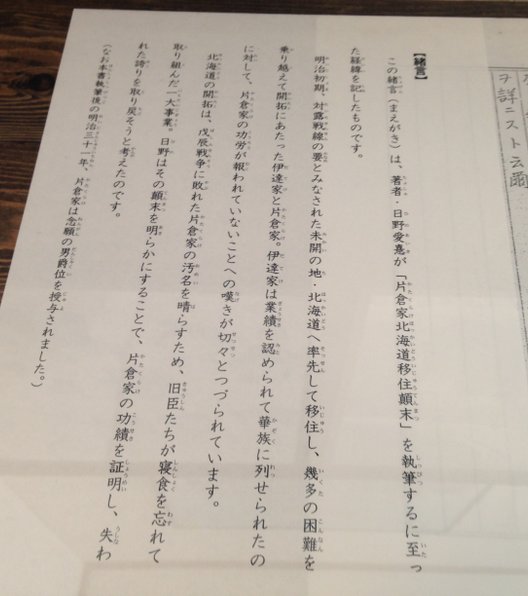 ヲ詳ニスト云爾
【緒言】
この緒言(まえがき)は、著者・日野愛憙が「片倉家北海道移住顛末」を執筆するに至っ
た経緯を記したものです。
明治初期、対露戦線の要とみなされた未開の地・北海道へ率先して移住し、幾多の困難を
乗り越えて開拓にあたった伊達家と片倉家。伊達家は業績を認められて華族に列せられたの
に対して、片倉家の功労が報われていないことへの嘆きが切々とつづられています。
北海道の開拓は、戊辰戦争に敗れた片倉家の汚名を晴らすため、旧臣たちが寝食を忘れて
取り組んだ一大事業。日野はその顛末を明らかにすることで、片倉家の功績を証明し、失わ
れた誇りを取り戻そうと考えたのです。
(なお本書執筆後の明治三十一年、片倉家は念願の男爵位を授与されました。)